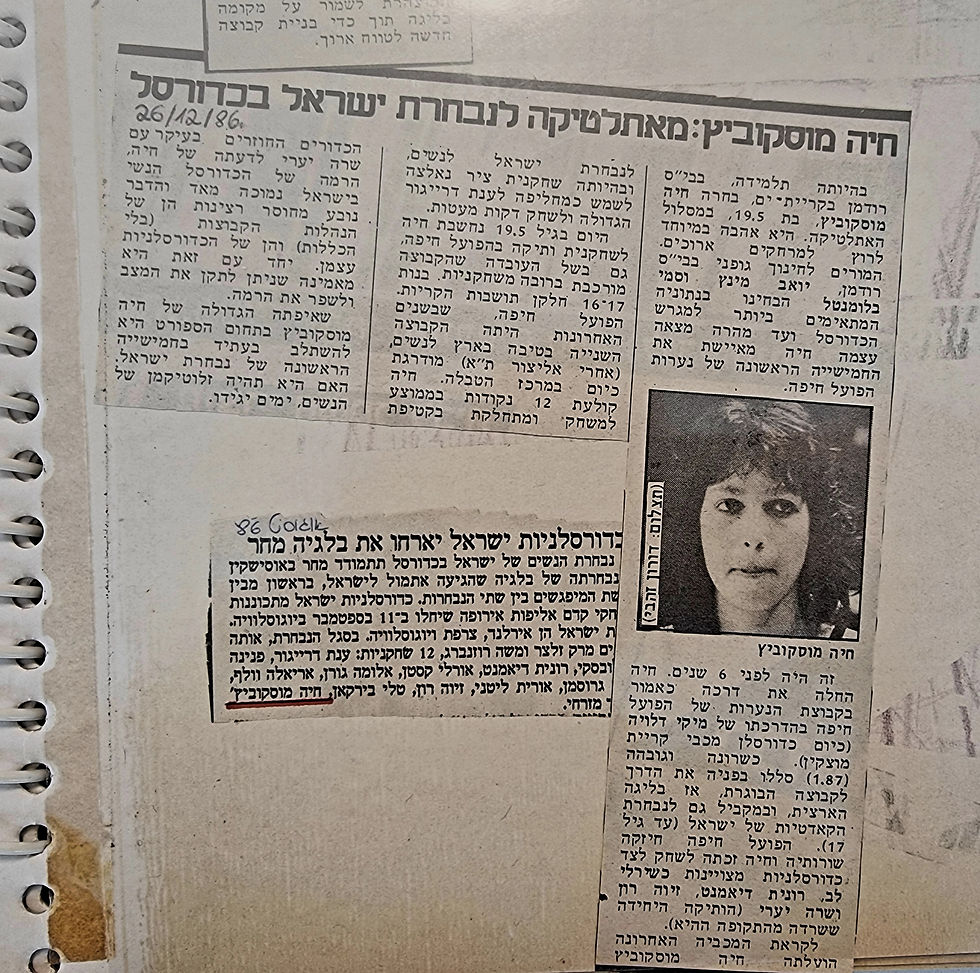 לשמור על מקומה
בליגה תוך כדי בניית קבוצה
חדשה לטווח ארוך.
חיה מוסקוביץ: מאתלטיקה לנבחרת ישראל בכדורסל
26/12/86.
בהיותה תלמידה, בבי״ס
רודמן בקריית־ים, בחרה חיה
מוסקוביץ, בת 19.5, במסלול
האתלטיקה. היא אהבה במיוחד
לרוץ למרחקים ארוכים.
המורים לחינוך גופני בבי״ס
רודמן, יואב מינץ וסמי
בלומנטל הבחינו בנתוניה
המתאימים ביותר למגרש
הכדורסל ועד מהרה מצאה
עצמה חיה מאיישת את
החמישייה הראשונה של נערות
הפועל חיפה.
(תצלום: דורון זהבי)
חיה מוסקוביץ
זה היה לפני 6 שנים. חיה
החלה את דרכה כאמור
בקבוצת הנערות של הפועל
חיפה בהדרכתו של מיקי דלויה
(כיום כדורסלן מכבי קריית
מוצקין). כשרונה וגובהה
(1.87) סללו בפניה את הדרך
לקבוצה הבוגרת, אז בליגה
הארצית, ובמקביל גם לנבחרת
הקאדטיות של ישראל (עד גיל
17). הפועל חיפה חיזקה
שורותיה וחיה זכתה לשחק לצד
כדורסלניות מצויינות כשירלי
לב, רונית דיאמנט, זיוה רון
ושרה יערי (הותיקה היחידה
ששרדה מהתקופה ההיא).
לקראת המכביה האחרונה
הועלתה חיה מוסקוביץ
לנבחרת ישראל לנשים,
ובהיותה שחקנית ציר נאלצה
לשמש כמחליפה לענת דרייגור
הגדולה ולשחק דקות מעטות.
היום בגיל 19.5 נחשבת חיה
לשחקנית ותיקה בהפועל חיפה,
גם בשל העובדה שהקבוצה
מורכבת ברובה משחקניות, בנות
16־17 חלקן תושבות הקריות.
הפועל חיפה, שבשנים
האחרונות היתה הקבוצה
השנייה בטיבה בארץ לנשים,
(אחרי אליצור ת״א) מודרגת
כיום במרכז הטבלה. חיה
קולעת 12 נקודות בממוצע
למשחק ומתחלקת בקטיפת
הכדורים החוזרים בעיקר עם
שרה יערי לדעתה של חיה,
הרמה של הכדורסל הנשי
בישראל נמוכה מאד והדבר
נובע מחוסר רצינות הן של
הנהלות הקבוצות (בלי
הכללות) והן של הכדורסלניות
עצמן. יחד עם זאת היא
מאמינה שניתן לתקן את המצב
ולשפר את הרמה.
שאיפתה הגדולה של חיה
מוסקוביץ בתחום הספורט היא
להשתלב בעתיד בחמישייה
הראשונה של נבחרת ישראל.
האם היא תהיה זלוטיקמן של
הנשים, ימים יגידו.
אוגוסט 86
כדורסלניות ישראל יארחו את בלגיה מחר
נבחרת הנשים של ישראל בכדורסל תתמודד מחר באוסישקין
נבחרתה של בלגיה שהגיעה אתמול לישראל, בראשון מבין
שת המיפגשים בין שתי הנבחרות. כדורסלניות ישראל מתכוננות
חקי קדם אליפות אירופה שיחלו ב־11 בספטמבר ביוגוסלוויה.
ת ישראל הן אירלנד, צרפת ויוגוסלוויה. בסגל הנבחרת, אותה
ים מרק זלצר ומשה רוזנברג, 12 שחקניות: ענת דרייגור, פנינה
ובסקי, רונית דיאמנט, אורלי קסטן, אלומה גורן, אריאלה וולף,
גרוסמן, אורית ליטני, זיוה רון, טלי בירקאן, חיה מוסקוביץ,
מזרחי.